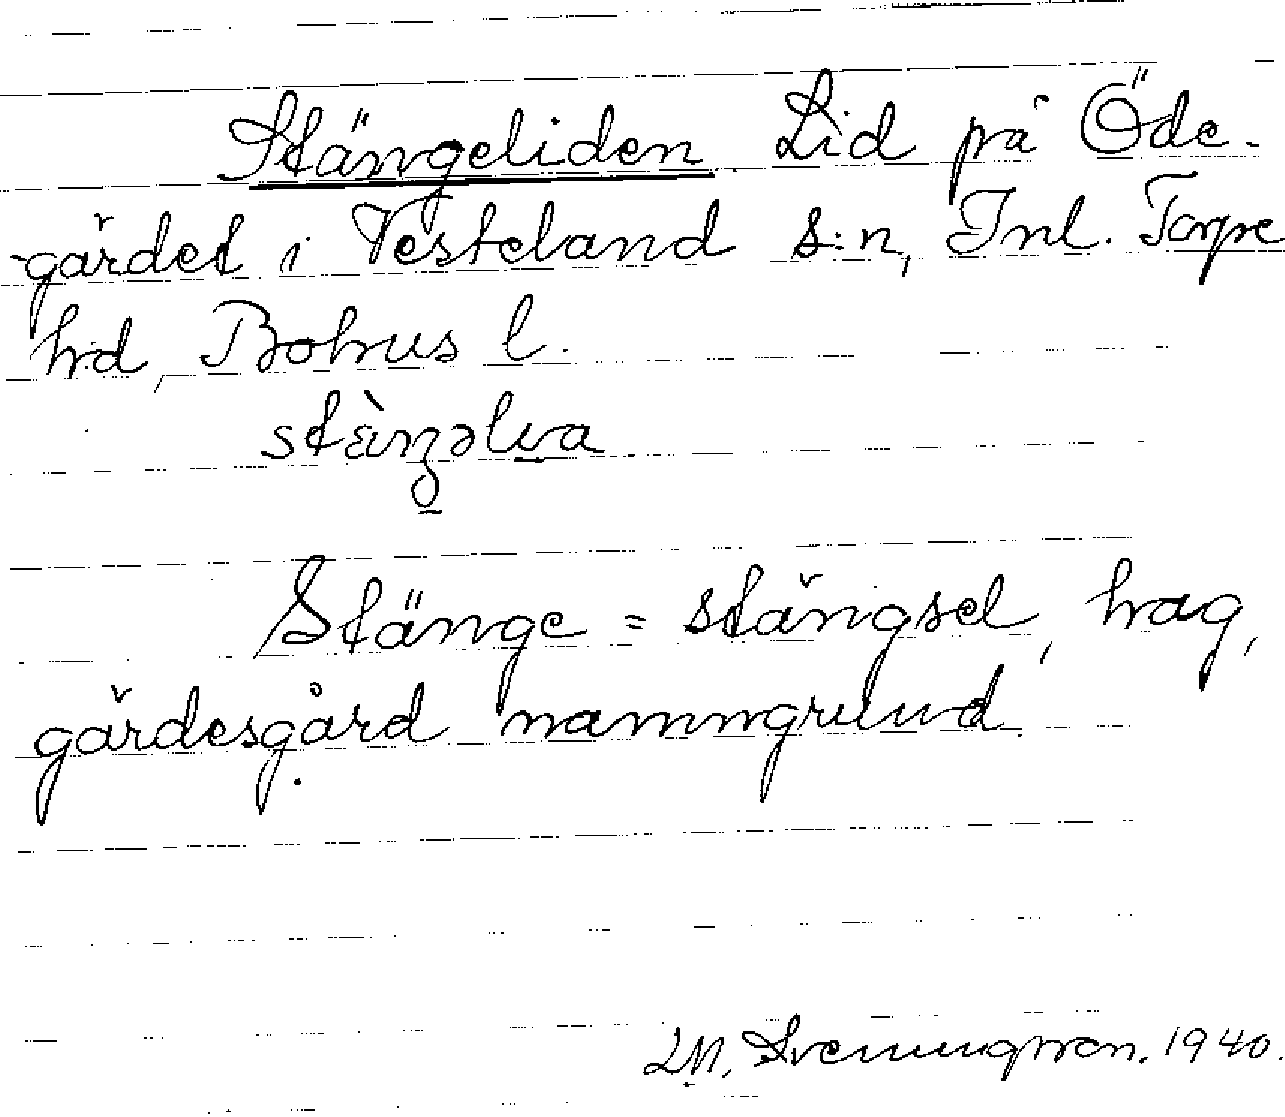 Stängeliden Lid på Öde-
gärdet i Vesteland s:n, Inl. Torpe
hd, Bohus l.
Stänge = stängsel, hag,
gärdesgård namngrund
Sveningsson. 1940.